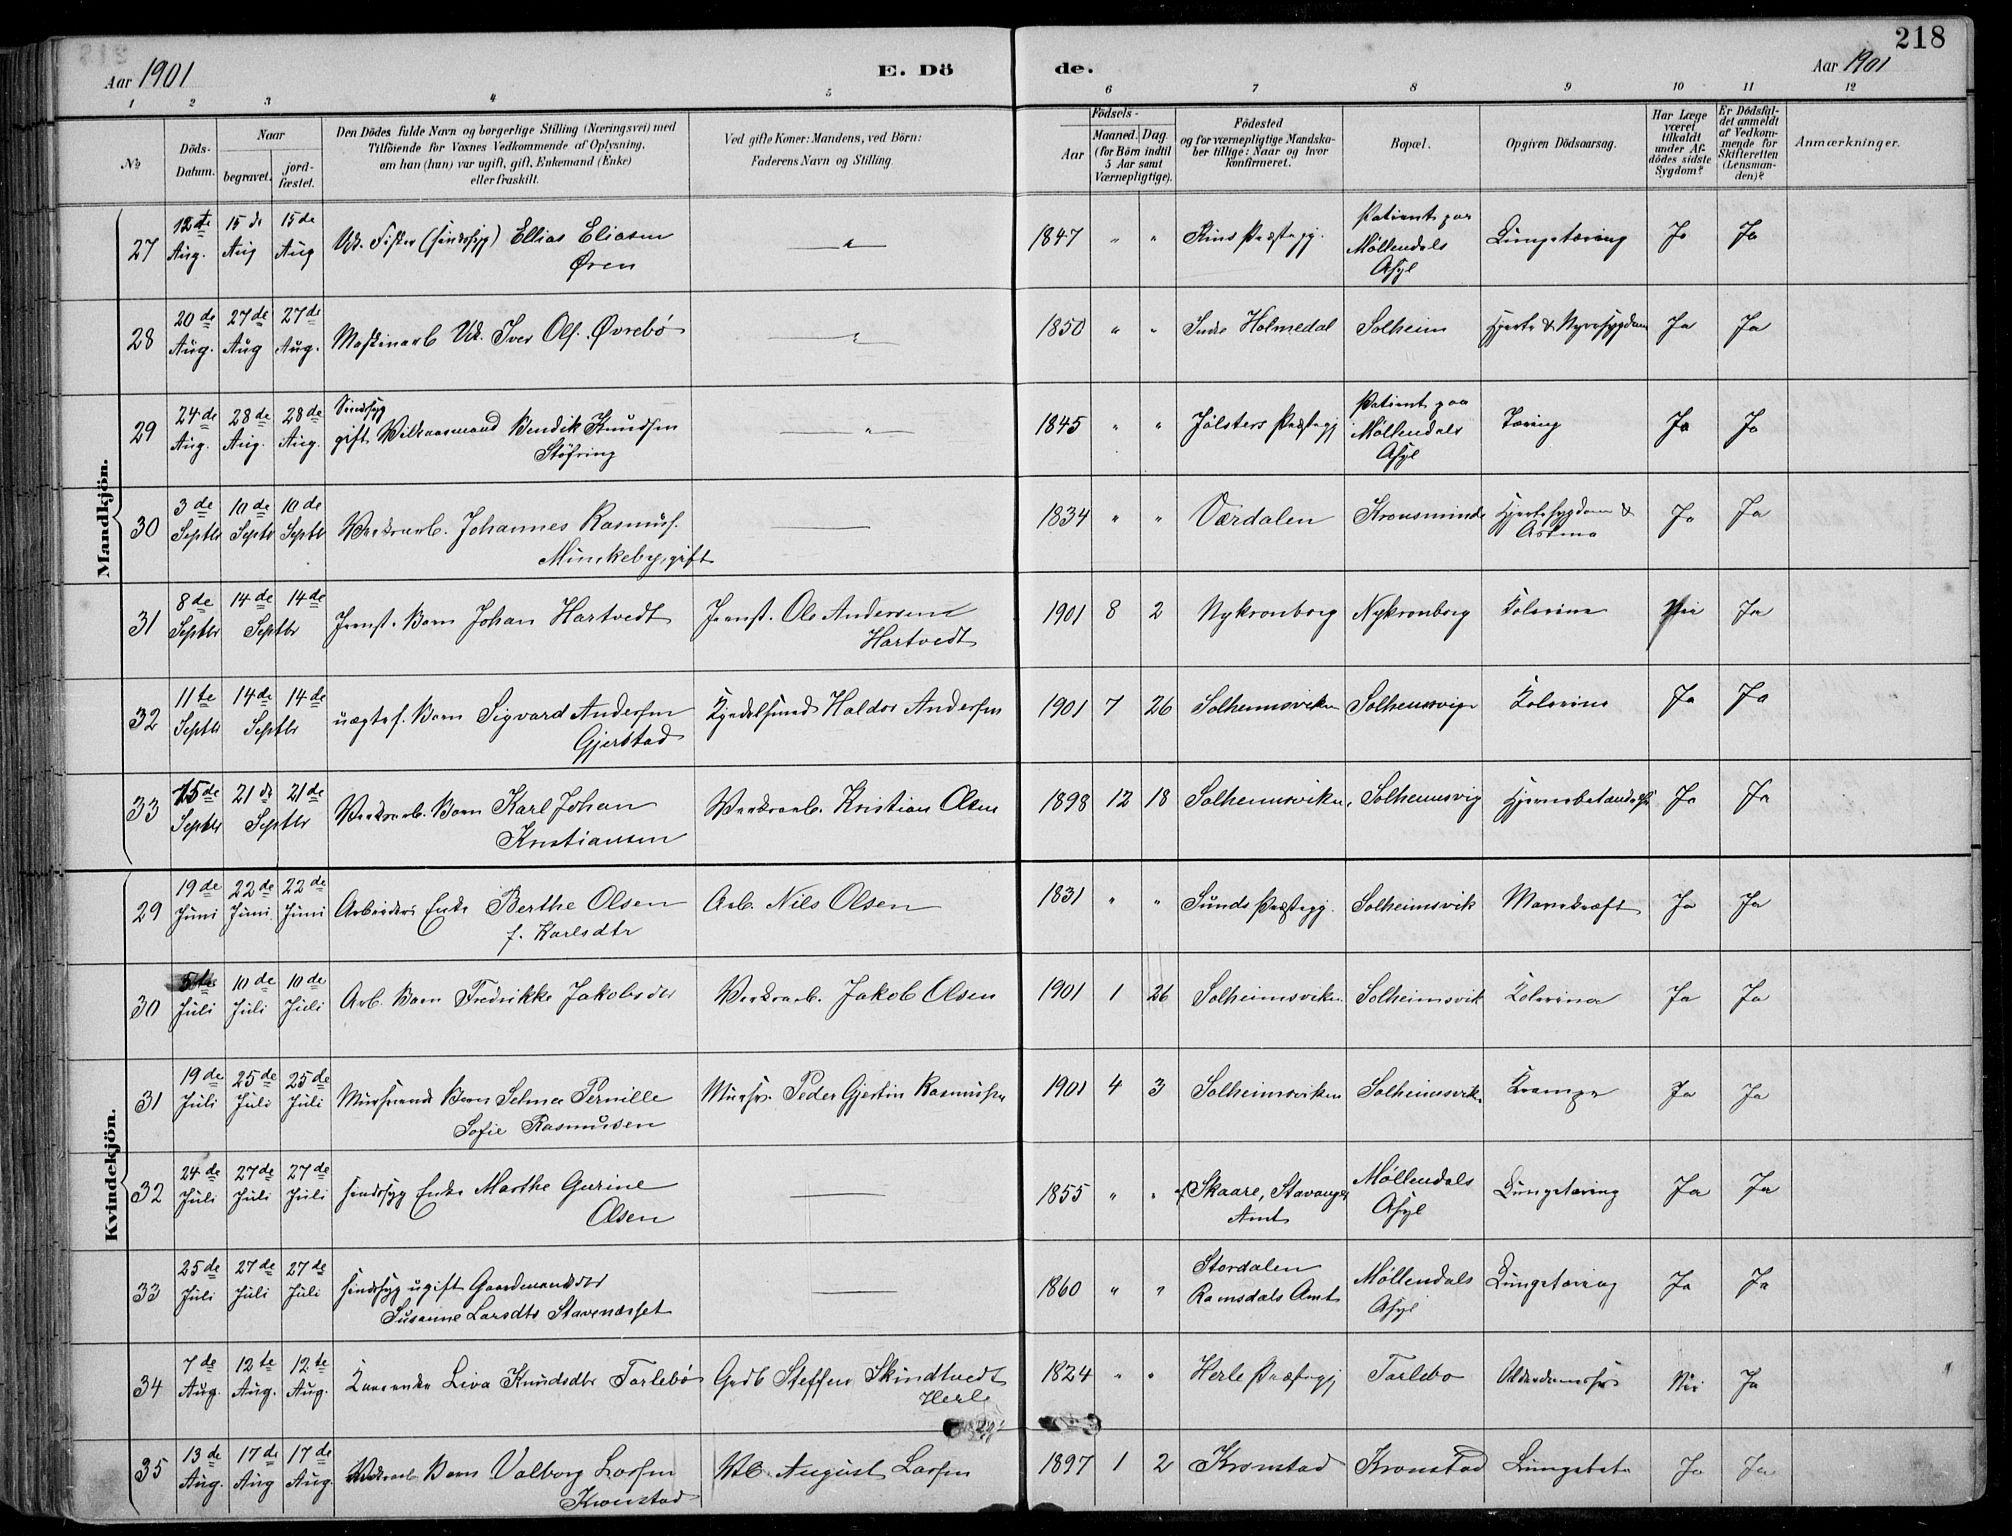 218
Aar 1901
E. Dö
de.
Aar 1901
1 2 3 4 5 6 7 8 9 10 11 12
№
Döds-
Datum.
Naar
begravet.
jord-
fæstet.
Den Dödes fulde Navn og borgerlige Stilling (Næringsvei) med
Tilföiende for Voxnes Vedkommende af Oplysning,
om han (hun) var ugift, gift, Enkemand (Enke)
eller fraskilt.
Ved gifte Koner: Mandens, ved Börn:
Faderens Navn og Stilling.
Födsels-
Aar
Maaned.
Dag.
(for Börn indtil
5 Aar samt
Værnepligtige).
Födested
og for værnepligtige Mandska-
ber tillige: Naar og hvor
konfirmeret.
Bopæl.
Opgiven Dödsaarsag.
Har Læge
været
tilkaldt
under Af-
dödes sidste
Sygdom?
Er Dödsfal-
det anmeldt
af Vedkom-
mende for
Skifteretten
(Lensman-
den)?
Anmærkninger.
Mandkjön.
27 12te Aug. 15de Aug 15de Aug Fisker (sindssyg) Ellias Eliasen
Øren
1847 " " Præstegj. Patient paa
Møllendals
Asyl
Lungetæring Ja Ja
28 20de Aug. 27de Aug 27de Aug. Maskinarb. Iver Ols. Øvrebø
1850 " " Indre Holmedal Solheim Hjerte & Nyresygdom Ja Ja
29 24de Aug. 28de Aug. 28de Aug. Sindssyg
gift Bendik Knudsen
Støfring
1845 " " Jölsters Præstegj Patient paa
Møllendals
Asyl
Tæring Ja Ja
30 3de Septbr 10de Septbr 10de Septbr Værksarb. Johannes Rasmus.
Minskeby, gift
1834 " " Værdalen Kronsminde Hjertesygdom &
Astma
Ja Ja
31 8de Septbr 14de 14de Septbr Barn Johan Hartvedt Ole Andersen
Hartvedt
1901 8 2 Nykronborg Nykronborg Kolerine Nei Ja
32 11te Septbr 14de 14de Septbr uægtef. Barn Sigvard Andersen
Gjerstad
Kjedelsmed Haldor Andersen
1901 7 26 Solheimsviken Solheimsvign Kolerine Ja Ja
33 15de Septbr 21de 21de Septbr Værksarb. Barn Karl Johan
Kristiansen
Værksarb. Kristian Olsen
1898 12 18 Solheimsviken, Solheimsvig Hjernebetændelse Ja Ja
Kvindekjön.
29 19de Juni 22de Juni 22de Juni Arbeiders Enke Berthe Olsen
f. Karlsdtr
Arb. Nils Olsen
1831 " " Sunds Præstegj. Solheimsvik Mavekræft Ja Ja
30 5te Juli 10de Juli 10de Juli Arb. Barn Fredrikke Jakobsdtr Værksarb. Jakob Olsen
1901 1 26 Solheimsviken. Solheimsvik Kolerina Ja Ja
31 19de Juli 25de Juli 25de Juli Murssvends Barn Selma Pernille
Sofie Rasmussen
Mursv. Peder Gjertin Rasmussen
1901 4 3 Solheimsviken Solheimsvik Krampe Ja Ja
32 24de Juli 27de Juli 27de Juli sindssyg Enke Marthe Gurine
Olsen
1855 " " Skaare, Stavanger
Amt
Møllendals
Asyl
Lungetæring Ja Ja
33 25de Juli 27de Juli 27de Juli sindssyg ugift Gaardmandsdtr
Susanne Larsdtr Stavenæsset
1860 " " Stordalen
Romsdals Amt
Møllendals
Asyl
Lungetæring Ja Ja
34 7de Aug. 12te Aug. 12te Aug. Kaarenke Liva Knudsdtr Tarlebø Grdb Steffen Skindtvedt
Herle
1824 " " Herle Præstegj Tarlebø Alderdomssv. Nei Ja
35 13de Aug. 17de Aug 17de Aug. Værksarb. Barn Valborg Larsen
Kronstad
August Larsen
1897 1 2 Kronstad Kronstad Lungebet. Ja Ja